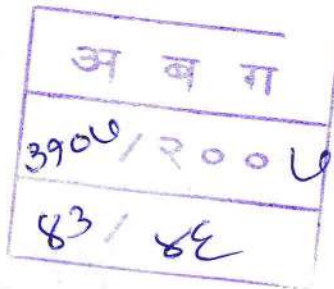 अ ब ग
३१०७/२००७
४३ / ४६